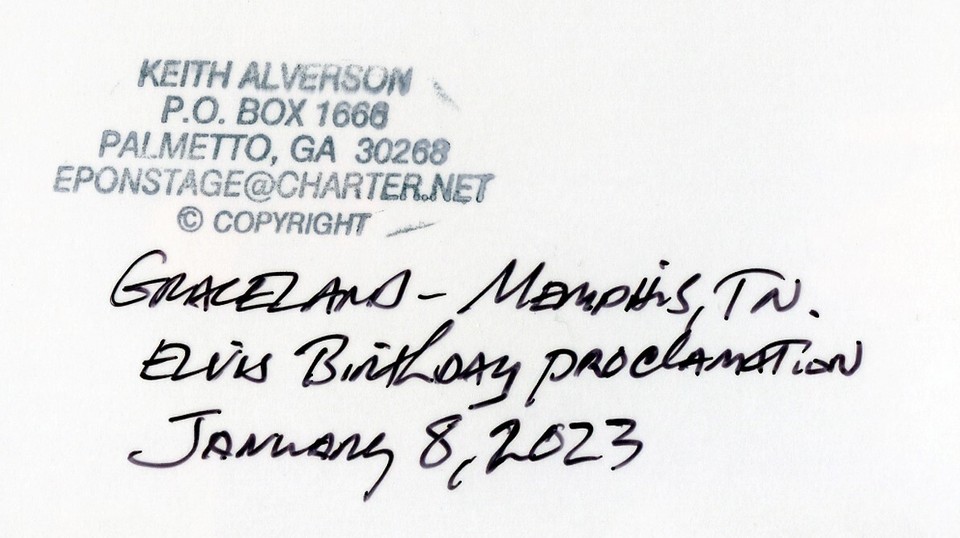 KEITH ALVERSON
P.O. BOX 1666
PALMETTO, GA 30268
EPONSTAGE@CHARTER.NET
© COPYRIGHT
GRACELAND - MEMPHIS, TN.
ELVIS BIRTHDAY PROCLAMATION
JANUARY 8, 2023